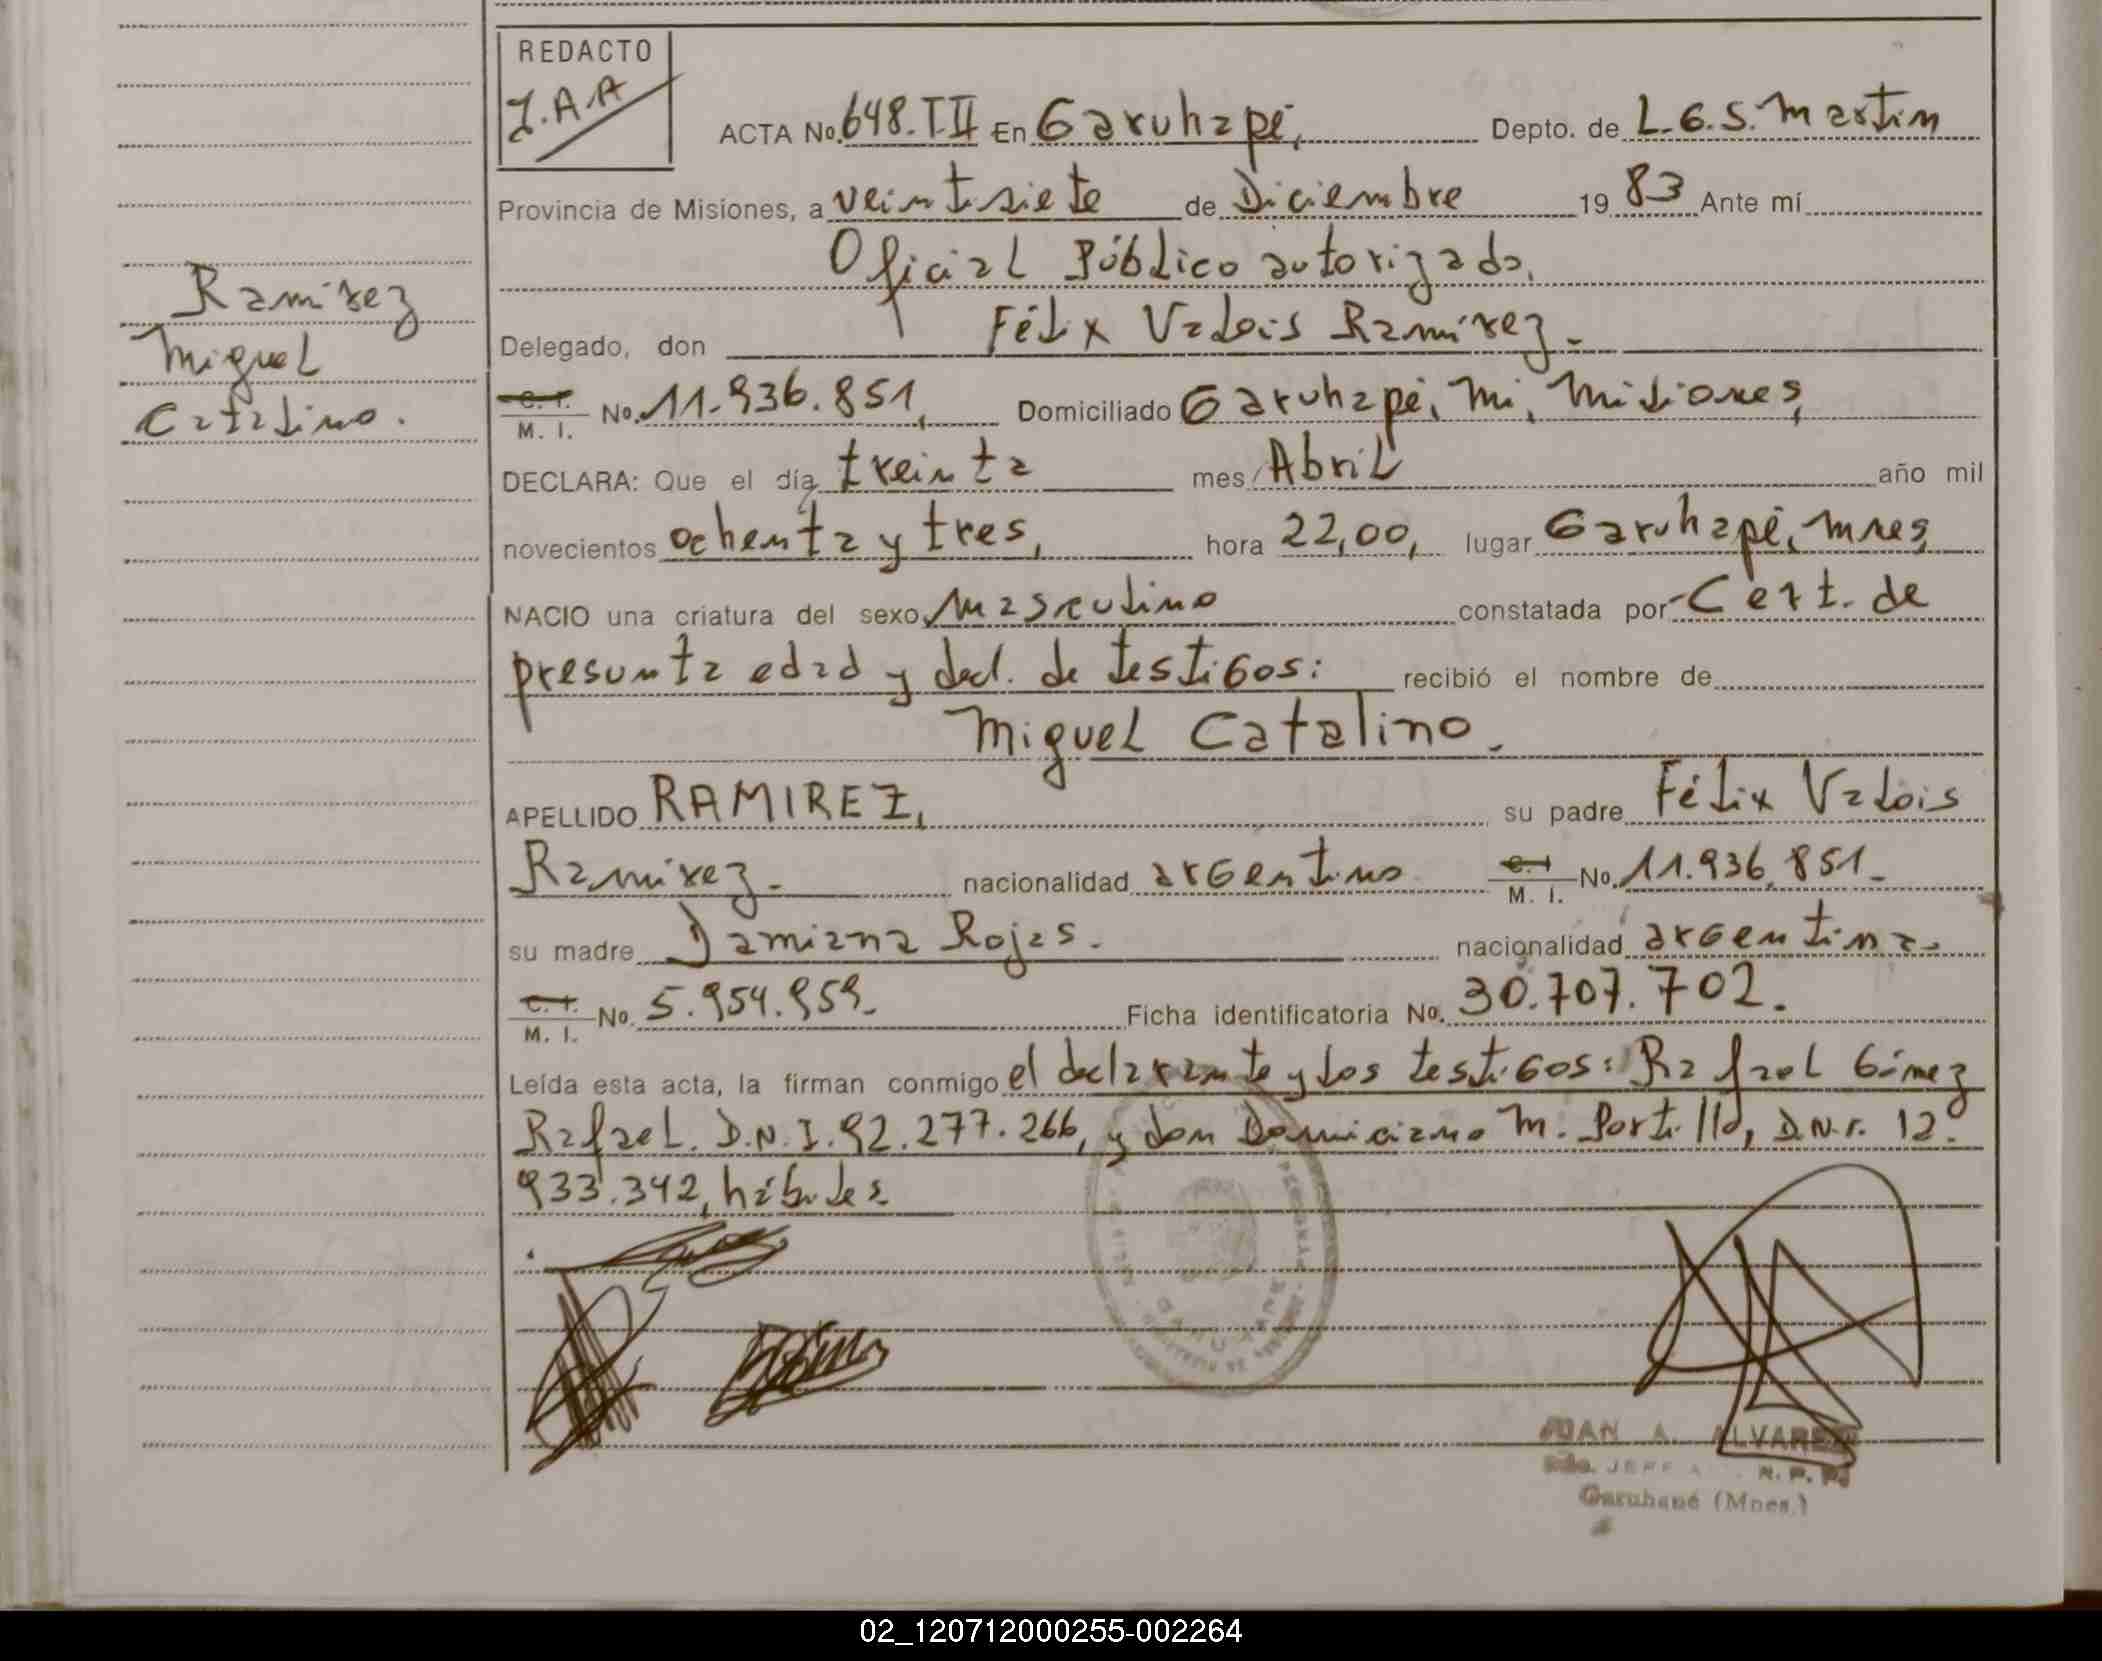 REDACTO
J.A.A
ACTA No. 648.T.II En Garuhapé, Depto. de L.G.S. Martin
Provincia de Misiones, a veintisiete de Diciembre 19 83 Ante mí
Oficial Público autorizado,
Delegado, don Félix Valois Ramírez.-
C. I. M. I. No. 11.936.851, Domiciliado Garuhapé, Mi, Misiones,
DECLARA: Que el día treinta mes Abril año mil
novecientos ochenta y tres, hora 22,00, lugar Garuhapé, Mnes,
NACIO una criatura del sexo masculino constatada por Cert. de
presunta edad y decl. de testigos: recibió el nombre de
Miguel Catalino.
APELLIDO RAMIREZ, su padre Félix Valois
Ramírez.- nacionalidad argentino C. I. M. I. No. 11.936.851.-
su madre Damiana Rojas. nacionalidad argentina.-
C. I. M. I. No. 5.954.959.- Ficha identificatoria No. 30.707.702.
Leída esta acta, la firman conmigo el declarante y los testigos: Rafael Gímez
Rafael. D.N.I. 92.277.266, y don Domiciano M. Portillo, D.N.I. 12.
933.342, hábiles.
Ramírez
Miguel
Catalino.
JUAN A. ALVAREZ
JEFE R. P. P.
Garuhapé (Mnes.)
02_120712000255-002264